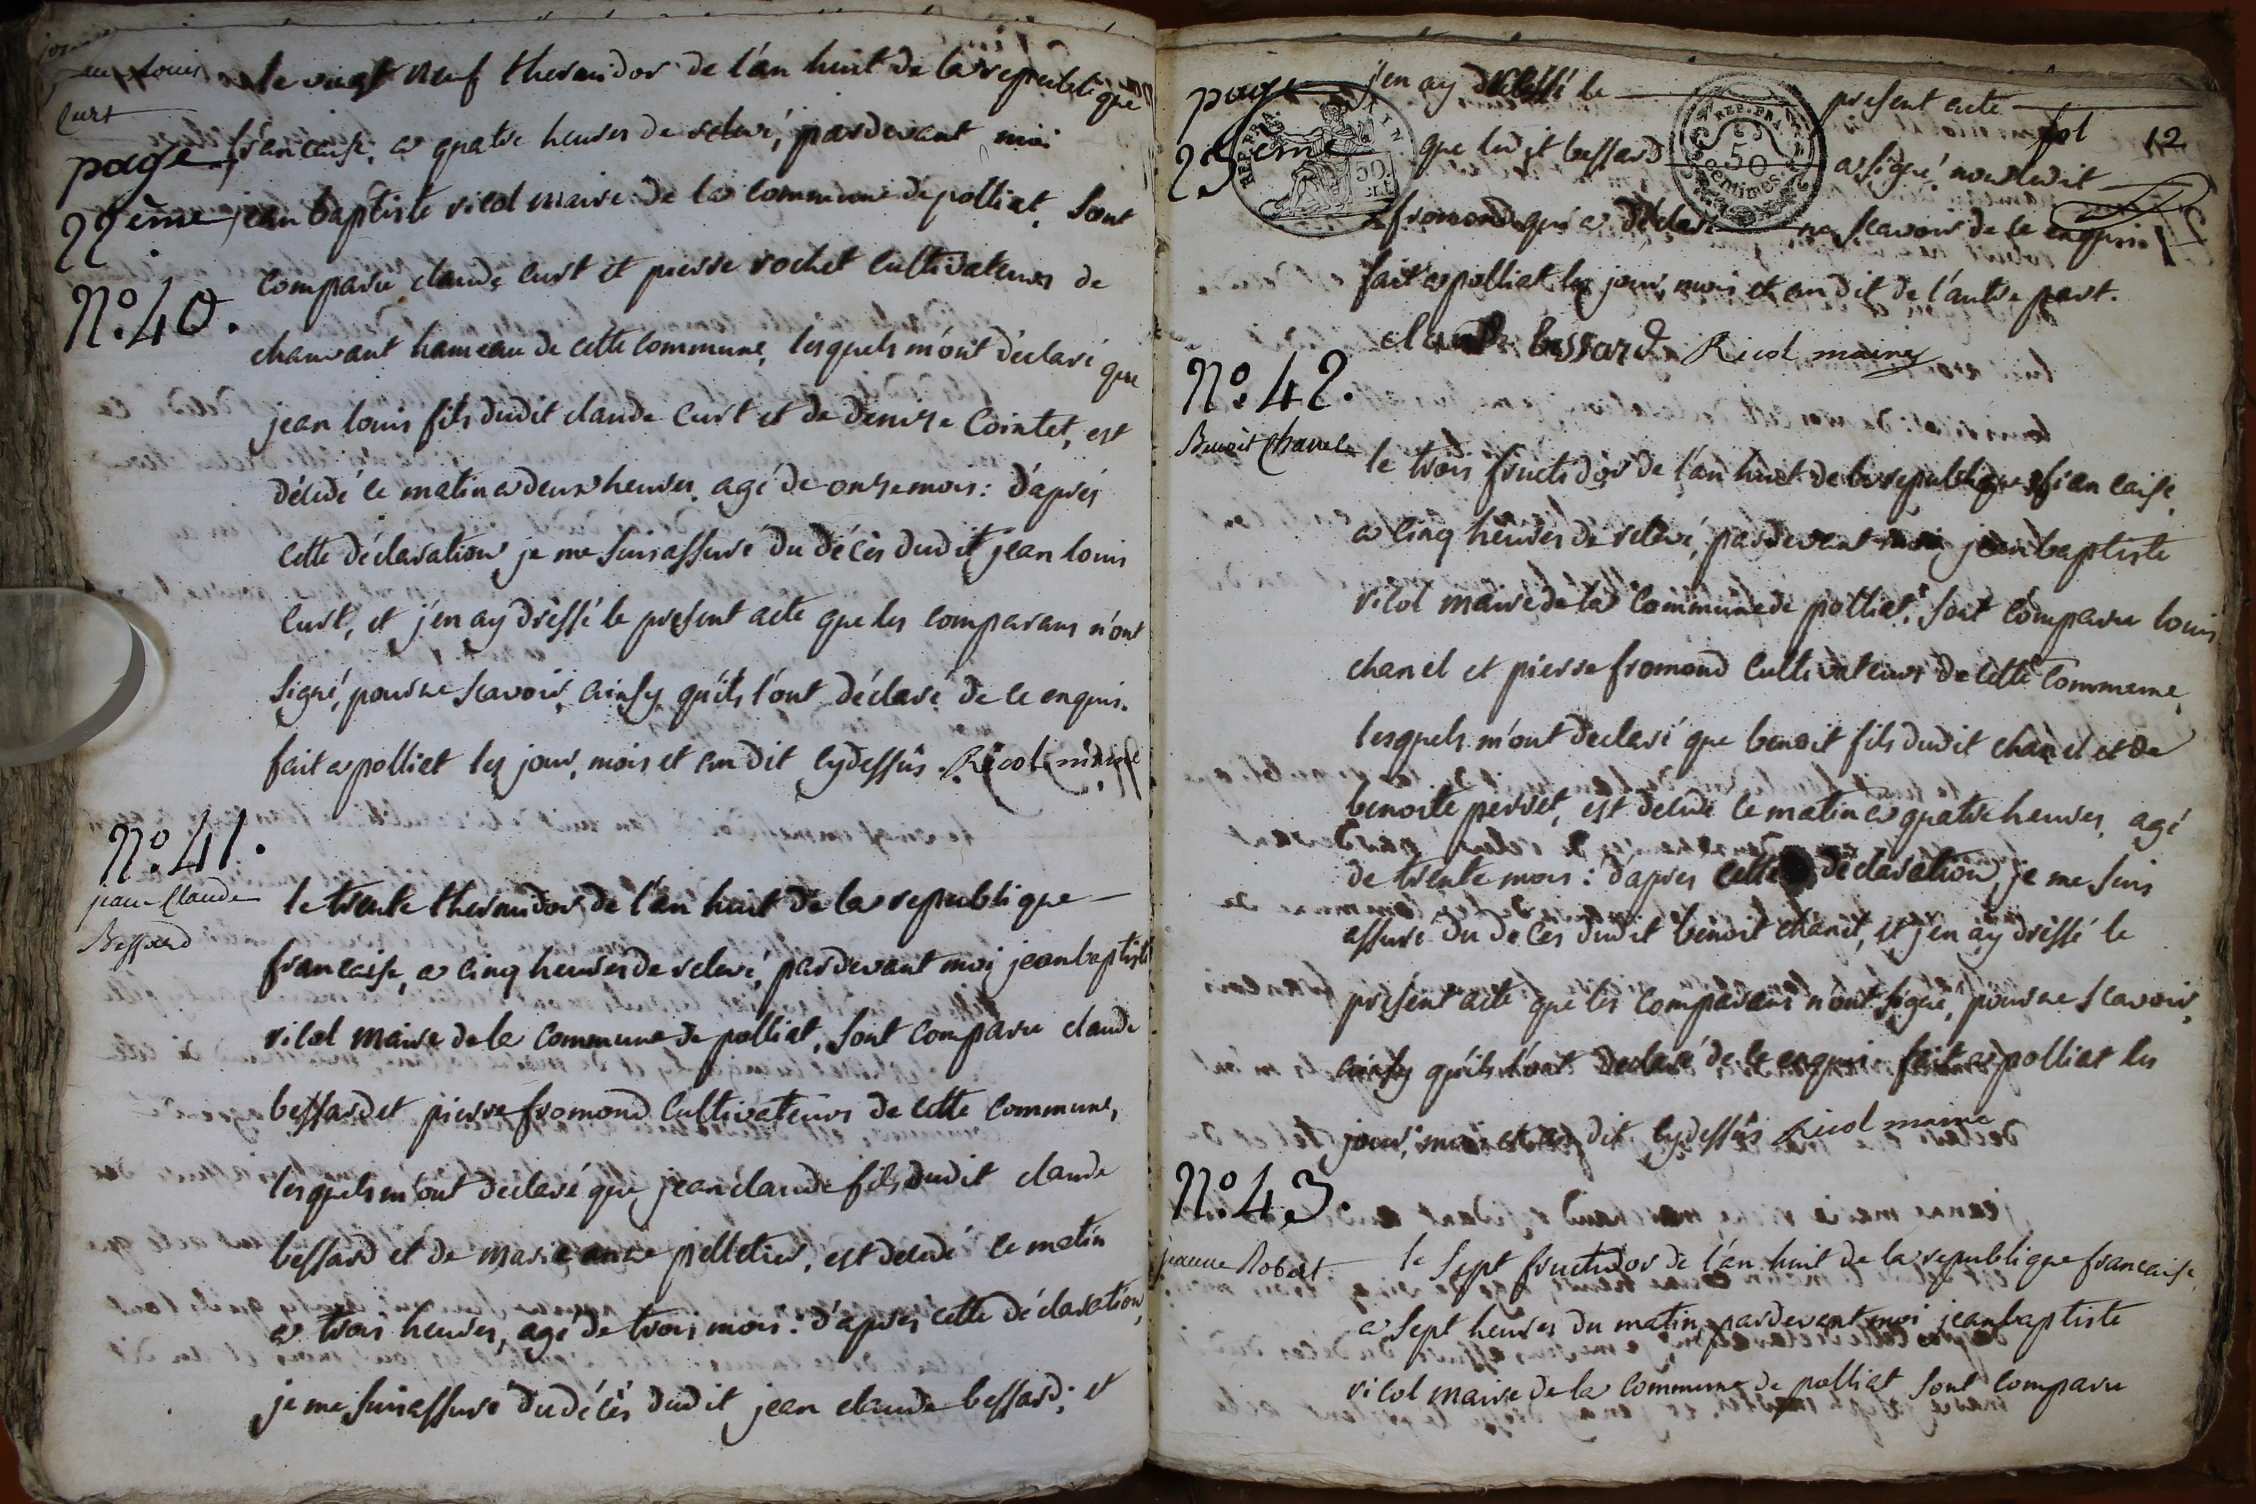 jean Louis
Curt
page
22ème
N.º 40.
le vingt neuf thermidor de l'an huit de la republique
francaise, a quatre heures de relevé, pardevant moi
jean baptiste ricol maire de la commune de polliat, sont
comparu claude curt et pierre rochet cultivateurs de
chanvant hameau de cette commune, lesquels m'ont déclaré que
jean louis fils dudit claude Curt et de denise Cointet, est
décédé ce matin a deux heures, agé de onze mois: d'après
cette déclaration je me suis assuré du décès dudit jean louis
Curt, et j'en ay dréssé le present acte que les comparans n'ont
signé, pour ne scavoir, ainsy qu'ils l'ont déclaré de ce enquis.
fait a polliat les jour, mois et an dit cydessus. Ricol maire
N.º 41.
jean Claude
Bessard
le trente thermidor de l'an huit de la republique
francaise, a cinq heures de relevé, pardevant moi jean baptiste
ricol maire de la commune de polliat, sont comparu claude
bessard et pierre fromond cultivateurs de cette commune,
lesquels m'ont declaré que jean claude fils dudit claude
bessard et de marie anne pelletier, est decedé ce matin
a trois heures, agé de trois mois: d'après cette déclaration,
je me suis assuré du décès dudit jean claude bessard; et
page
23ème
j'en ay dréssé le present acte
fol 12
REP. FRA.
50
REP. FRA.
50
centimes.
que ledit bessard a signé non ledit
fromond qui a déclaré ne scavoir de ce enquis.
fait a polliat les jour, mois et an dit de l'autre part.
claude bessard Ricol maire
N.º 42.
Benoit Chanel
le trois fructidor de l'an huit de la republique francaise,
a cinq heures de relevé, pardevant moi jean baptiste
ricol maire de la commune de polliat, sont comparu louis
chanel et pierre fromond cultivateurs de cette commune,
lesquels m'ont declaré que benoit fils dudit chanel et de
benoite perret, est decedé ce matin a quatre heures, agé
de trente mois: d'apres cette déclaration, je me suis
assuré du deces dudit benoit chanel, et j'en ay dréssé le
présent acte que les comparans n'ont signé, pour ne scavoir,
ainsy qu'ils l'ont declaré de ce enquis. fait a polliat les
jour, mois et an dit cydessus Ricol maire
N.º 43.
jeanne Robert
le sept fructidor de l'an huit de la republique francaise,
a sept heures du matin, pardevant moi jean baptiste
ricol maire de la commune de polliat sont comparu